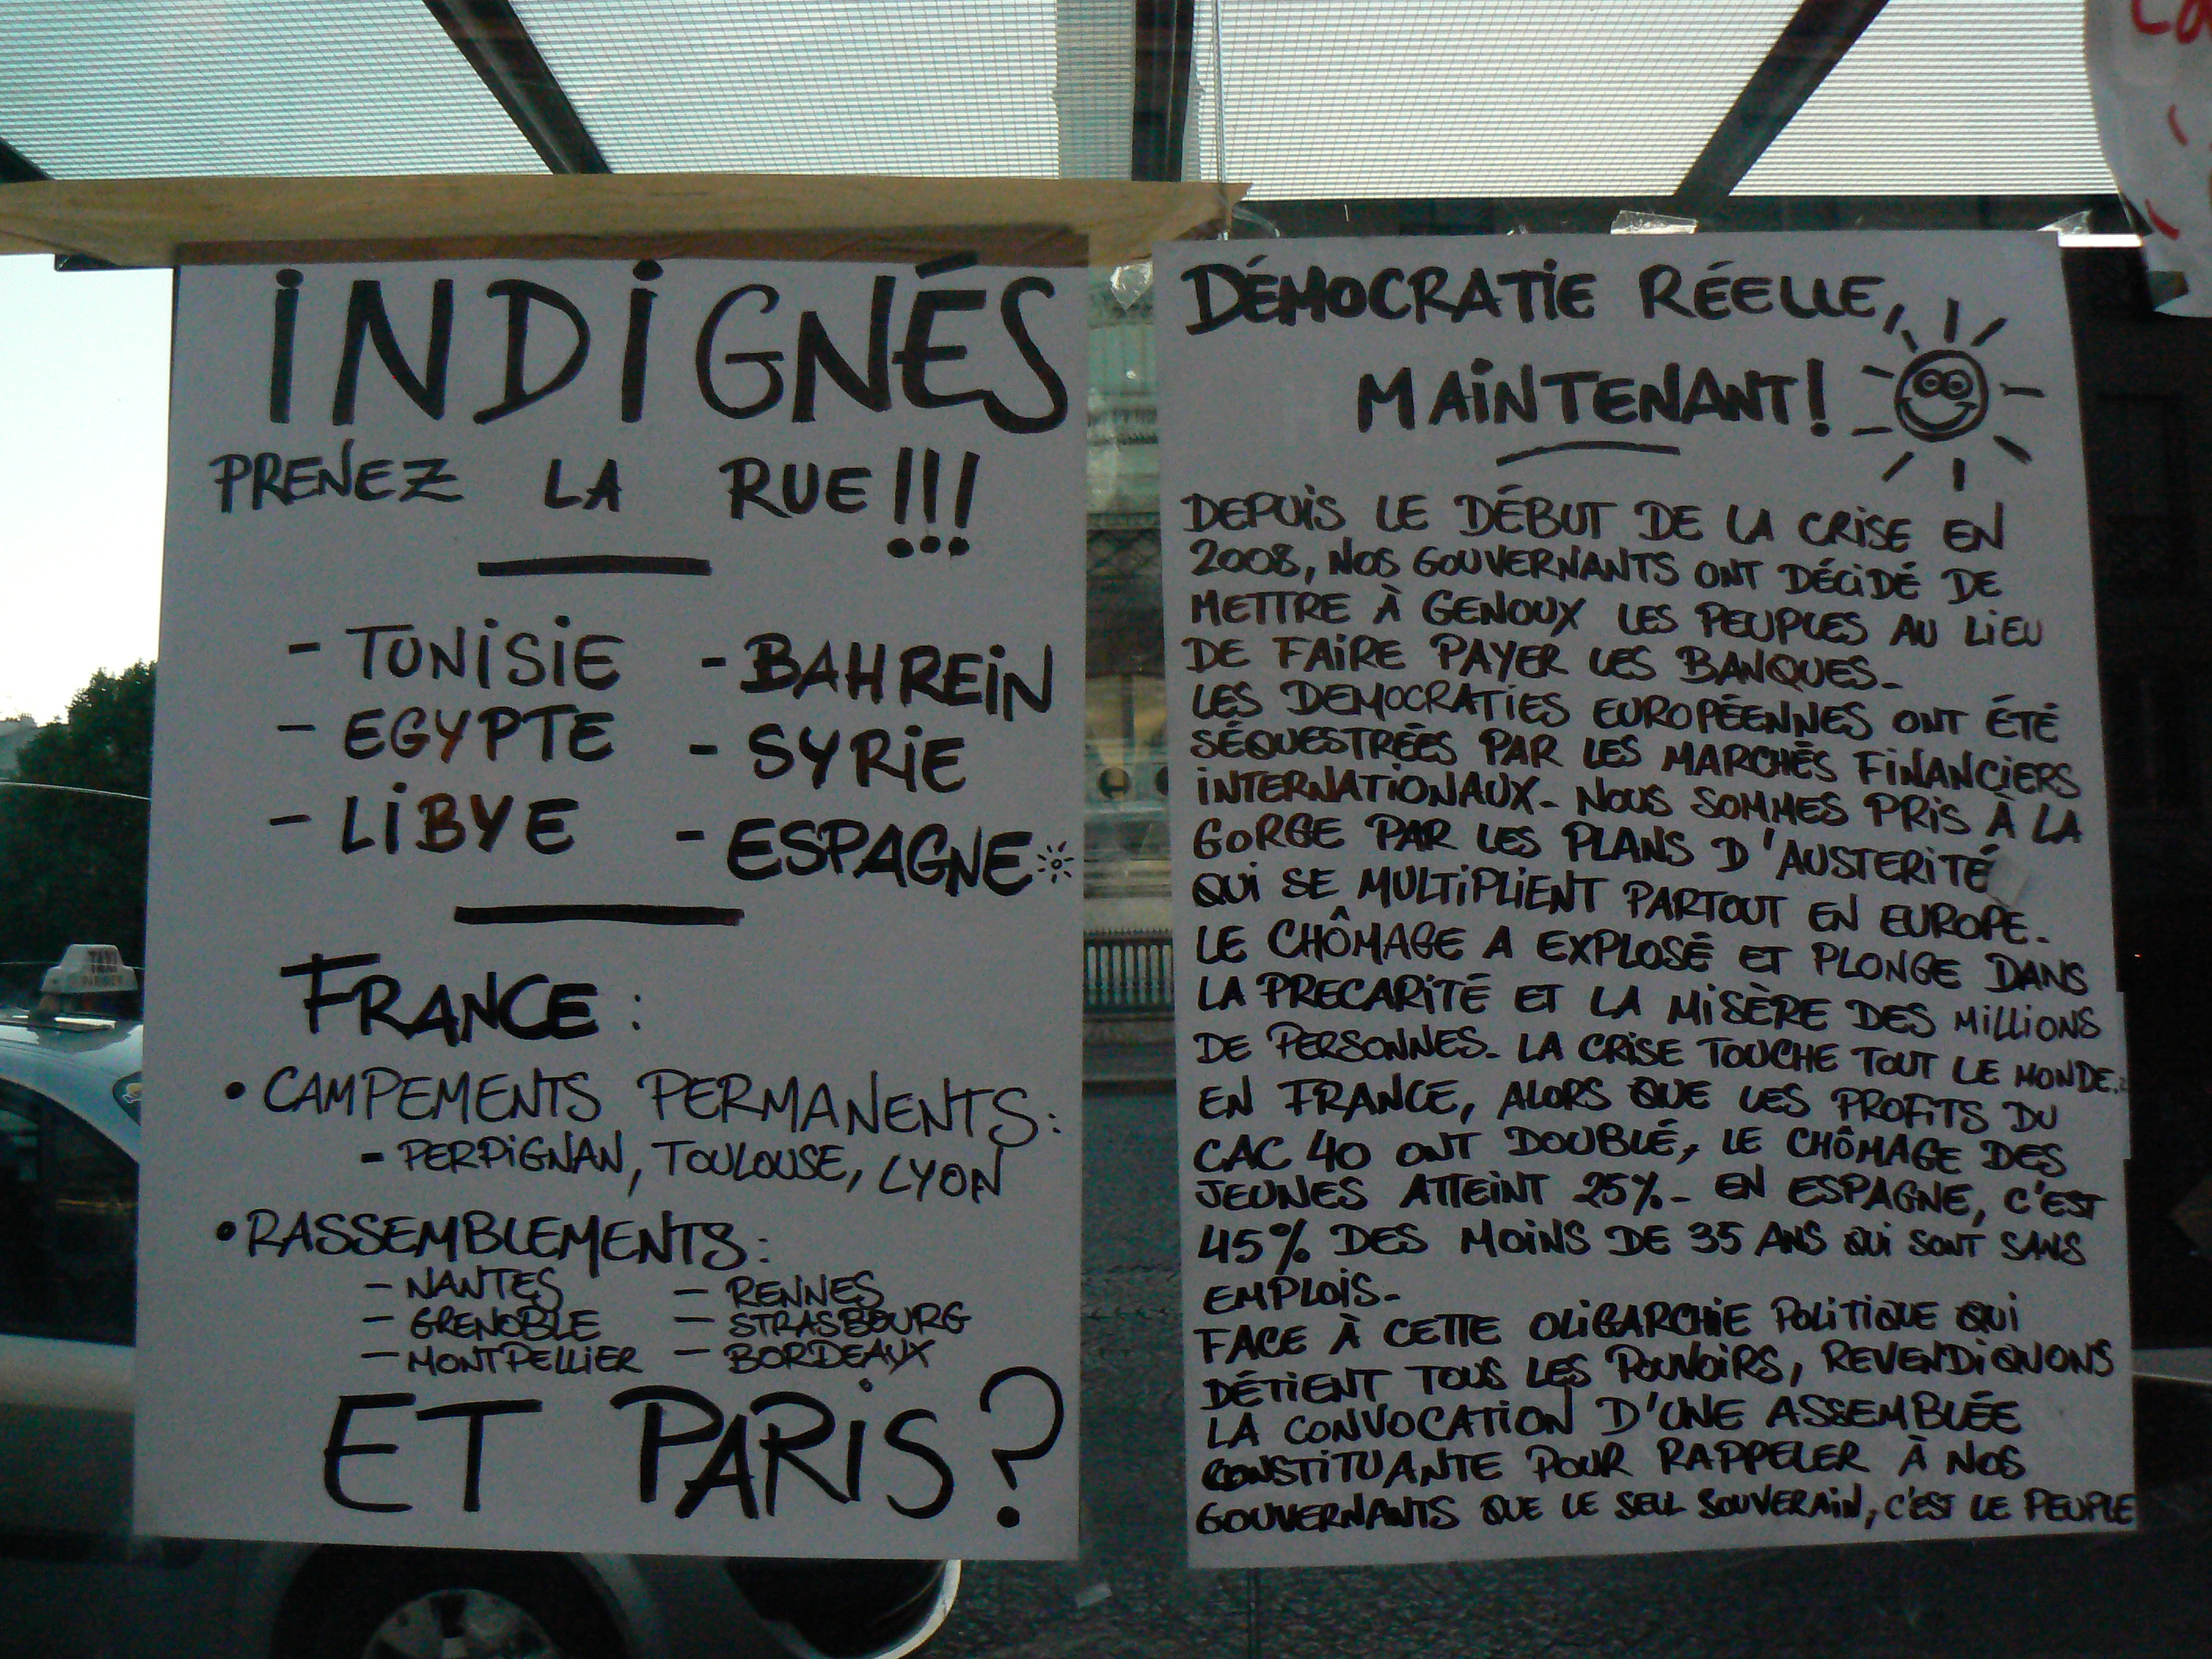 INDIGNÉS
PRENEZ LA RUE!!!
- TUNISIE - BAHREIN
- EGYPTE - SYRIE
- LIBYE - ESPAGNE
FRANCE :
• CAMPEMENTS PERMANENTS :
- PERPIGNAN, TOULOUSE, LYON
• RASSEMBLEMENTS :
- NANTES - RENNES
- GRENOBLE - STRASBOURG
- MONTPELLIER - BORDEAUX
ET PARIS ?
DÉMOCRATIE RÉELLE,
MAINTENANT!
DEPUIS LE DÉBUT DE LA CRISE EN
2008, NOS GOUVERNANTS ONT DÉCIDÉ DE
METTRE À GENOUX LES PEUPLES AU LIEU
DE FAIRE PAYER LES BANQUES.
LES DEMOCRATIES EUROPÉENNES ONT ÉTÉ
SÉQUESTRÉES PAR LES MARCHÉS FINANCIERS
INTERNATIONAUX. NOUS SOMMES PRIS À LA
GORGE PAR LES PLANS D'AUSTERITÉ
QUI SE MULTIPLIENT PARTOUT EN EUROPE.
LE CHÔMAGE A EXPLOSÉ ET PLONGE DANS
LA PRECARITÉ ET LA MISÈRE DES MILLIONS
DE PERSONNES. LA CRISE TOUCHE TOUT LE MONDE.
EN FRANCE, ALORS QUE LES PROFITS DU
CAC 40 ONT DOUBLÉ, LE CHÔMAGE DES
JEUNES ATTEINT 25%. EN ESPAGNE, C'EST
45% DES MOINS DE 35 ANS QUI SONT SANS
EMPLOIS.
FACE À CETTE OLIGARCHIE POLITIQUE QUI
DÉTIENT TOUS LES POUVOIRS, REVENDIQUONS
LA CONVOCATION D'UNE ASSEMBLÉE
CONSTITUANTE POUR RAPPELER À NOS
GOUVERNANTS QUE LE SEUL SOUVERAIN, C'EST LE PEUPLE
TAXI